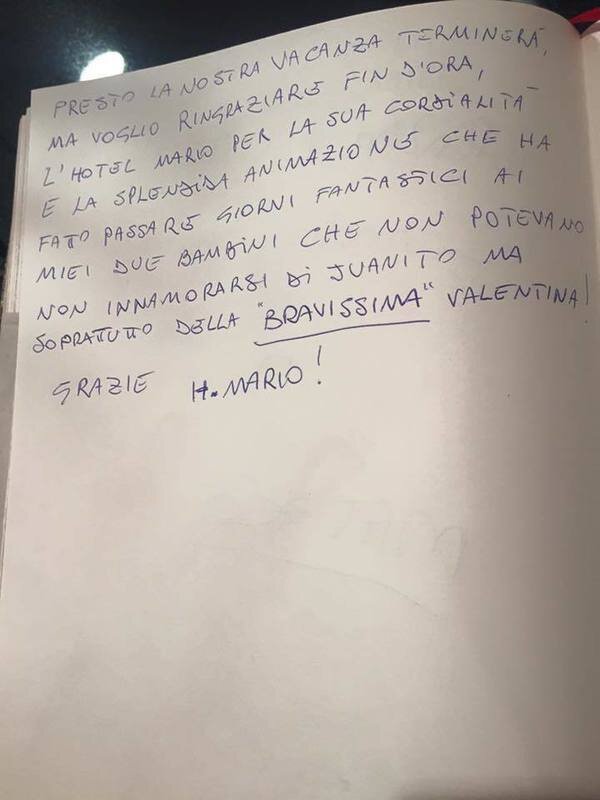 PRESTO LA NOSTRA VACANZA TERMINERÀ,
MA VOGLIO RINGRAZIARE FIN D'ORA,
L'HOTEL MARIO PER LA SUA CORDIALITÀ
E LA SPLENDIDA ANIMAZIONE CHE HA
FATTO PASSARE GIORNI FANTASTICI AI
MIEI DUE BAMBINI CHE NON POTEVANO
NON INNAMORARSI DI JUANITO MA
SOPRATTUTTO DELLA "BRAVISSIMA" VALENTINA!
GRAZIE H. MARIO!